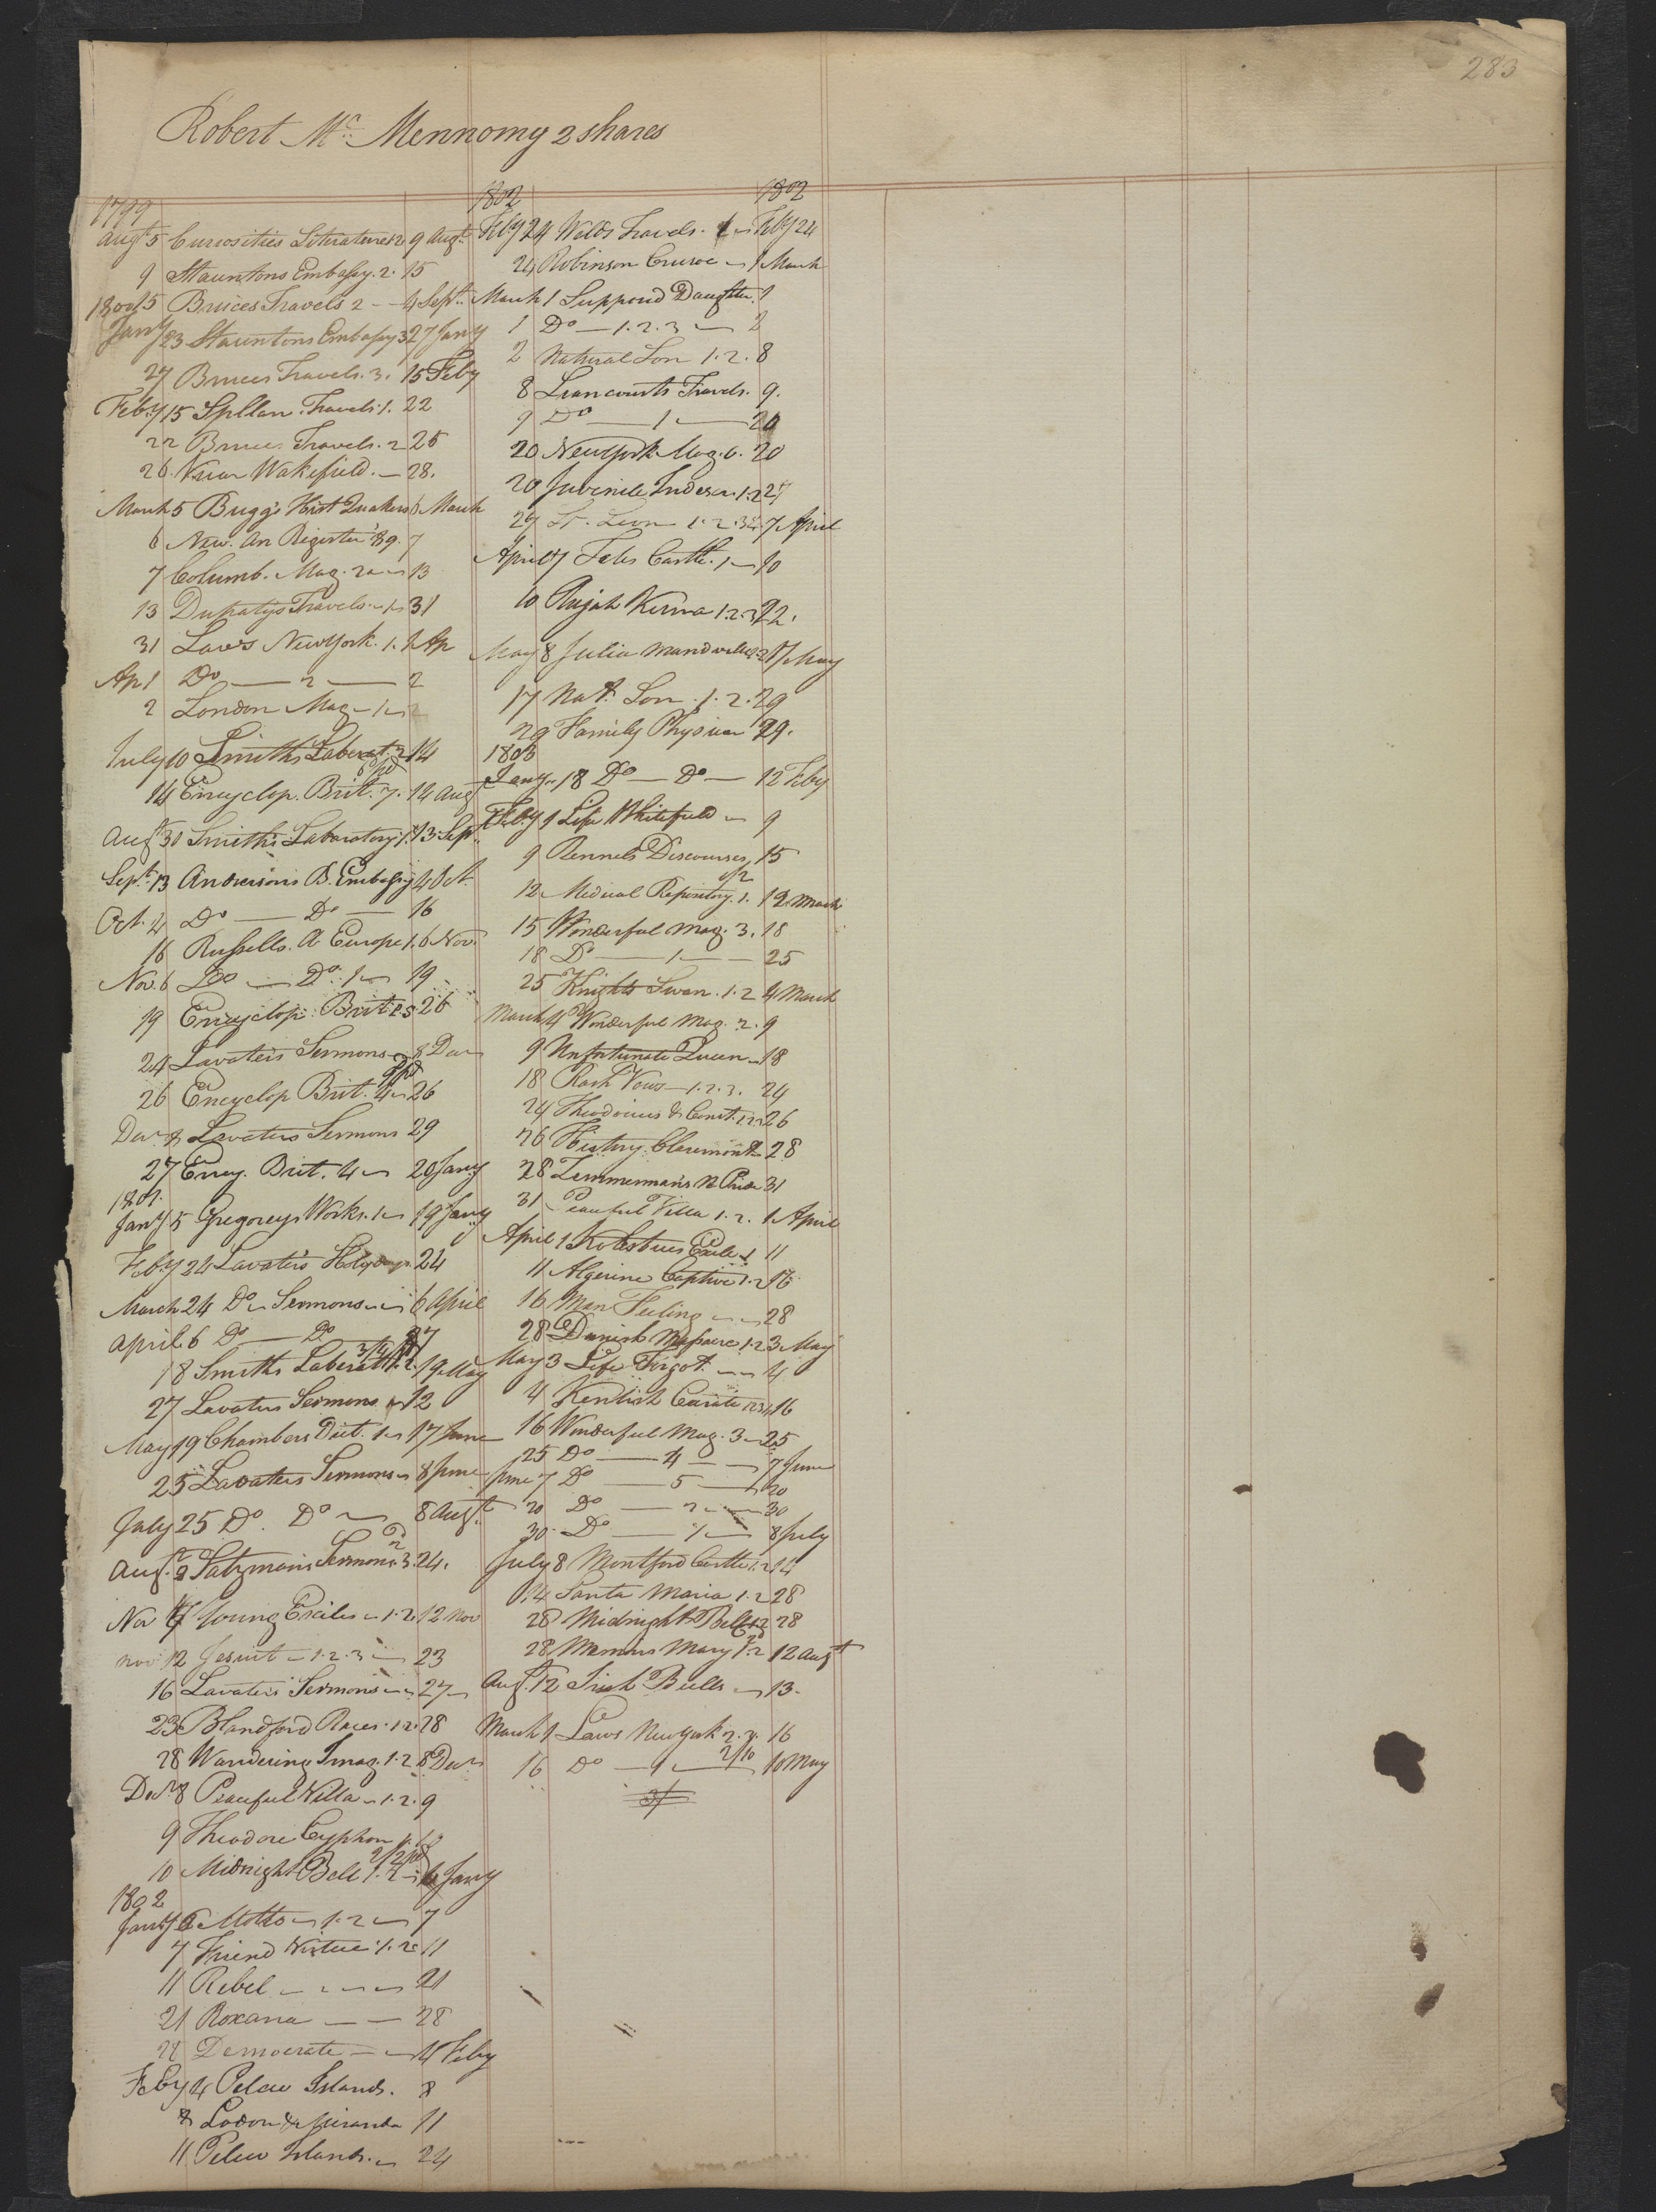 283
Robert Mc. Mennomy 2 shares
1799
Augt 5 Curiosities Literature 1.2 9 Augt
9 Stauntons Embassy. 2. 15
15 Bruces Travels 2 - - 4 Sept.
1800
Jany 23 Stauntons Embassy 3 27 Jany
27 Bruces Travels. 3. 15 Feby
Feby 15 Travels. 1. 22
22 Bruces Travels. 2 25
26. Vicar Wakefield. - 28.
March 5 Bugg's Hist Quakers 6 March
6 New. An Register '89. 7
7 Columb. Mag. 2 13
13 Dupatys Travels 31
31 Laws New York. 1. 1 Ap
Ap 1 Do — 2 — 2
2 London Mag - 1 2
July 10 Smith's Laborat. 2 14
14 Encyclop. Brit. 7. 14 Aug
Augt 30 Smith's Laboratory 1. 13 Sept
Sept. 13 Andersons B. Embassy 4 Oct.
Oct. 4 Do — Do — 16
16 Russells. A Europe 1. 6 Nov.
Nov. 6 Do — Do. 1 19
19 Encyclop. Brit 26
24 Lavaters Sermons 8 Decr
26 Encyclop Brit. 4 26
Decr 8 Lavaters Sermons 29
27 Ency. Brit. 4 20 Jany
1801.
Jany 5 Gregoreys Works. 1 19 Jany
Feby 24 Lavaters 24
March 24 Do Sermons 6 April
April 6 Do — Do 27
18 Smiths Laborat 1.2. 19 May
27 Lavaters Sermons 12
May 19 Chambers Dict. 1 17 June
25 Lavaters Sermons 8 June
July 25 Do. Do 8 Augt
Aug. 8 Sermons 3. 24.
Nov 7 Young Exiles 1.2. 12 Nov
Nov 12 Jesuit - 1.2.3 23
16 Lavaters Sermons 27
23 Blandford Races. 1.2. 28
28 Wandering Imag. 1.2 8 Decr
Decr 8 Peaceful Villa 1.2. 9
9 Theodore Cyphon 1. 10
10 Midnight Bell 1.2 6 Jany
1802
Jany 6 Motto 1.2 7
7 Friend Virtue 1.2 11
11 Rebel 21
21 Roxana — — 28
28 Democrate — 4 Feby
Feby 4 Pelew Islands. 8
8 Lodon & Miranda 11
11 Pelew Islands. 24
1802 1802
Feby 24 Welds Travels. 1 Feby 24
24 Robinson Crusoe 1 March
March 1 Supposed Daughter. 1
1 Do — 1.2.3 2
2 Natural Son 1.2. 8
8 Liancourts Travels. 9.
9 Do — 1 — 20
20 New York Mag. 6. 20
20 Juvenile Indescr. 1.2 27
27 St. Leon 1.2.3 7 April
April 7 Feles Castle. 1 10
10 Rajah Kisna 1.2.3 22.
May 8 Julia Mandville 1.2 17 May
17 Nat. Son. 1.2. 29
29 Family Physician 29.
1803
Jany. 18 Do — Do — 12 Feby
Feby 1 Life Whitefield 9
9 Rennels Discourses 15
12 Medical Repository. 1. 12 March
15 Wonderful Mag. 3. 18
18 Do — 1 — 25
25 Knights Swan. 1.2 4 March
March 4 Wonderful Mag. 2. 9
9 Unfortunate Queen 18
18 Rash Vows — 1.2.3. 24
24 Theodocius & Const. 1.2 26
26 History Claremont 28
28 Zimmermans N Pride 31
31 Peaceful Villa 1.2. 1 April
April 1 Kotzebues Exile 1 11
11 Algerine Captive 1.2 16
16 Man Feeling 28
28 Danish Massacre 1.2 3 May
May 3 Life Turgot 4
4 Kentish Curate 1234 16
16 Wonderful Mag. 3 25
25 Do — 4 — 7 June
June 7 Do — 5 — 20
20 Do — 2 30
30 Do — 1 8 July
July 8 Montford Castle 1.2 14
14 Santa Maria 1.2 28
28 Midnight Bell 1.2 28
28 Memoirs Mary 1.2 12 Augt
Augt 12 Irish Bulls 13.
March 1 Laws New York 2. 3. 16
16 Do — 1 2/10 10 May